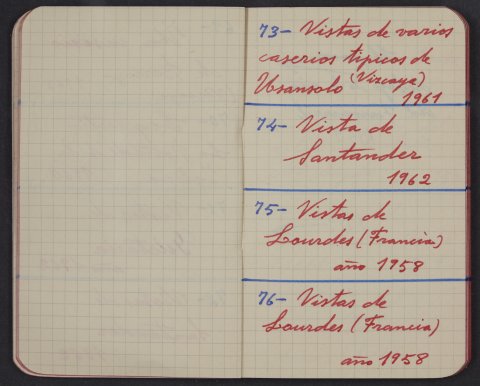 73- Vistas de varios
caserios tipicos de
Usansolo (Vizcaya)
1961
74- Vista de
Santander
1962
75- Vistas de
Lourdes (Francia)
año 1958
76- Vistas de
Lourdes (Francia)
año 1958